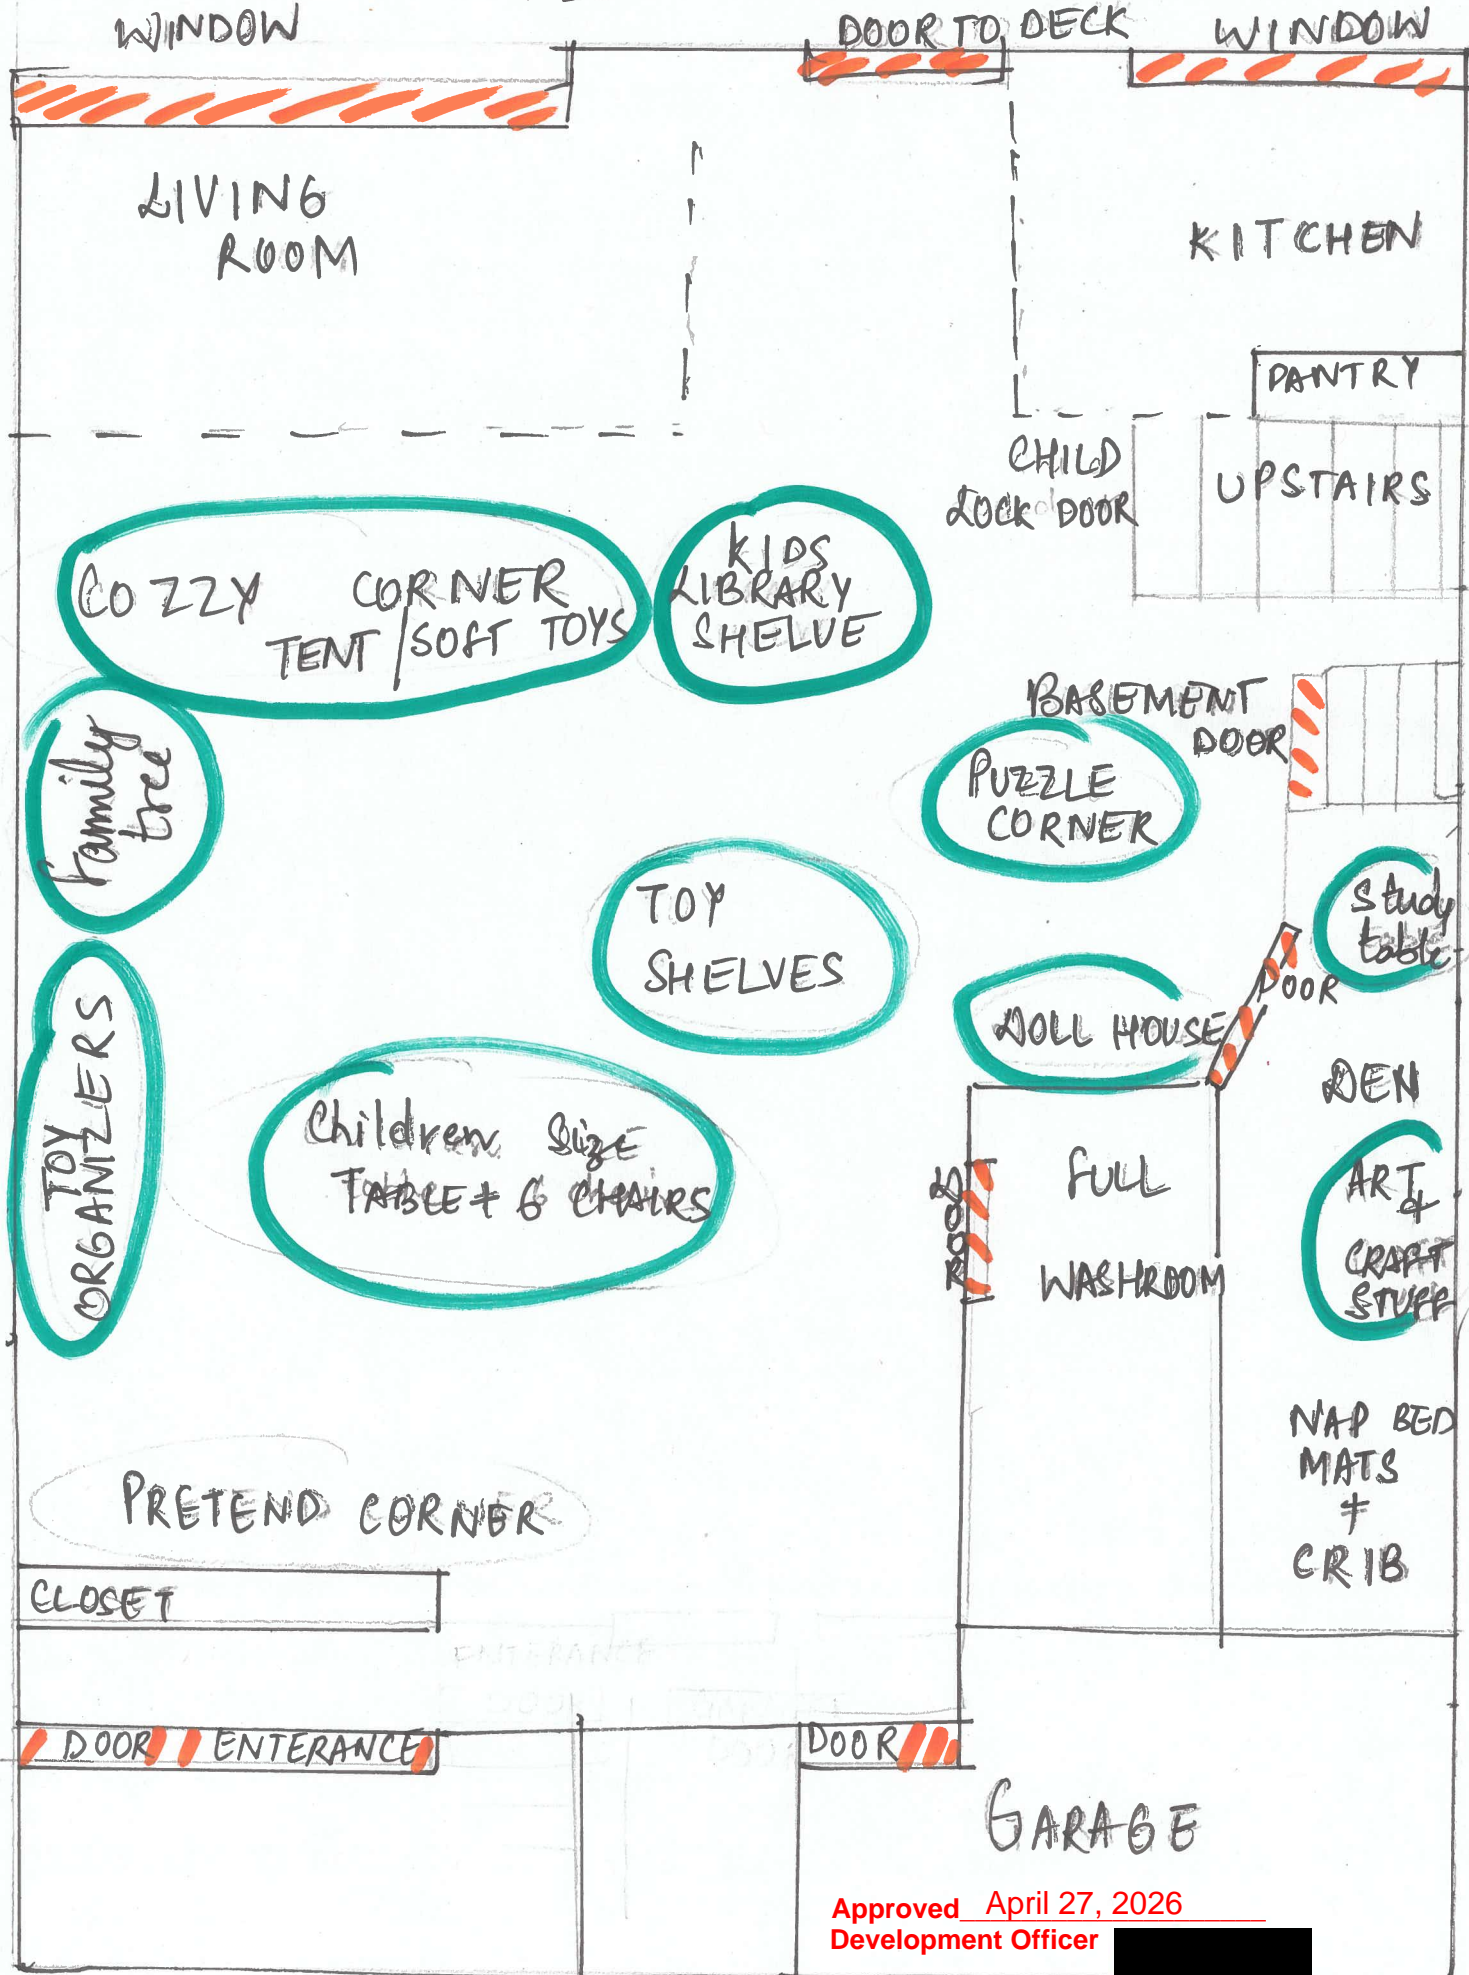 WINDOW
DOOR TO DECK
WINDOW
LIVING
ROOM
KITCHEN
PANTRY
CHILD
LOCK DOOR
UPSTAIRS
COZZY CORNER
TENT/SOFT TOYS
KIDS
LIBRARY
SHELVE
BASEMENT
DOOR
Family
tree
PUZZLE
CORNER
TOY
SHELVES
Study
table
DOOR
DOLL HOUSE
TOY
ORGANIZERS
DEN
Children Size
TABLE + 6 CHAIRS
DOOR
FULL
WASHROOM
ART
+
CRAFT
STUFF
NAP BED
MATS
+
CRIB
PRETEND CORNER
CLOSET
ENTERANCE
DOOR ENTERANCE
DOOR
GARAGE
Approved April 27, 2026
Development Officer